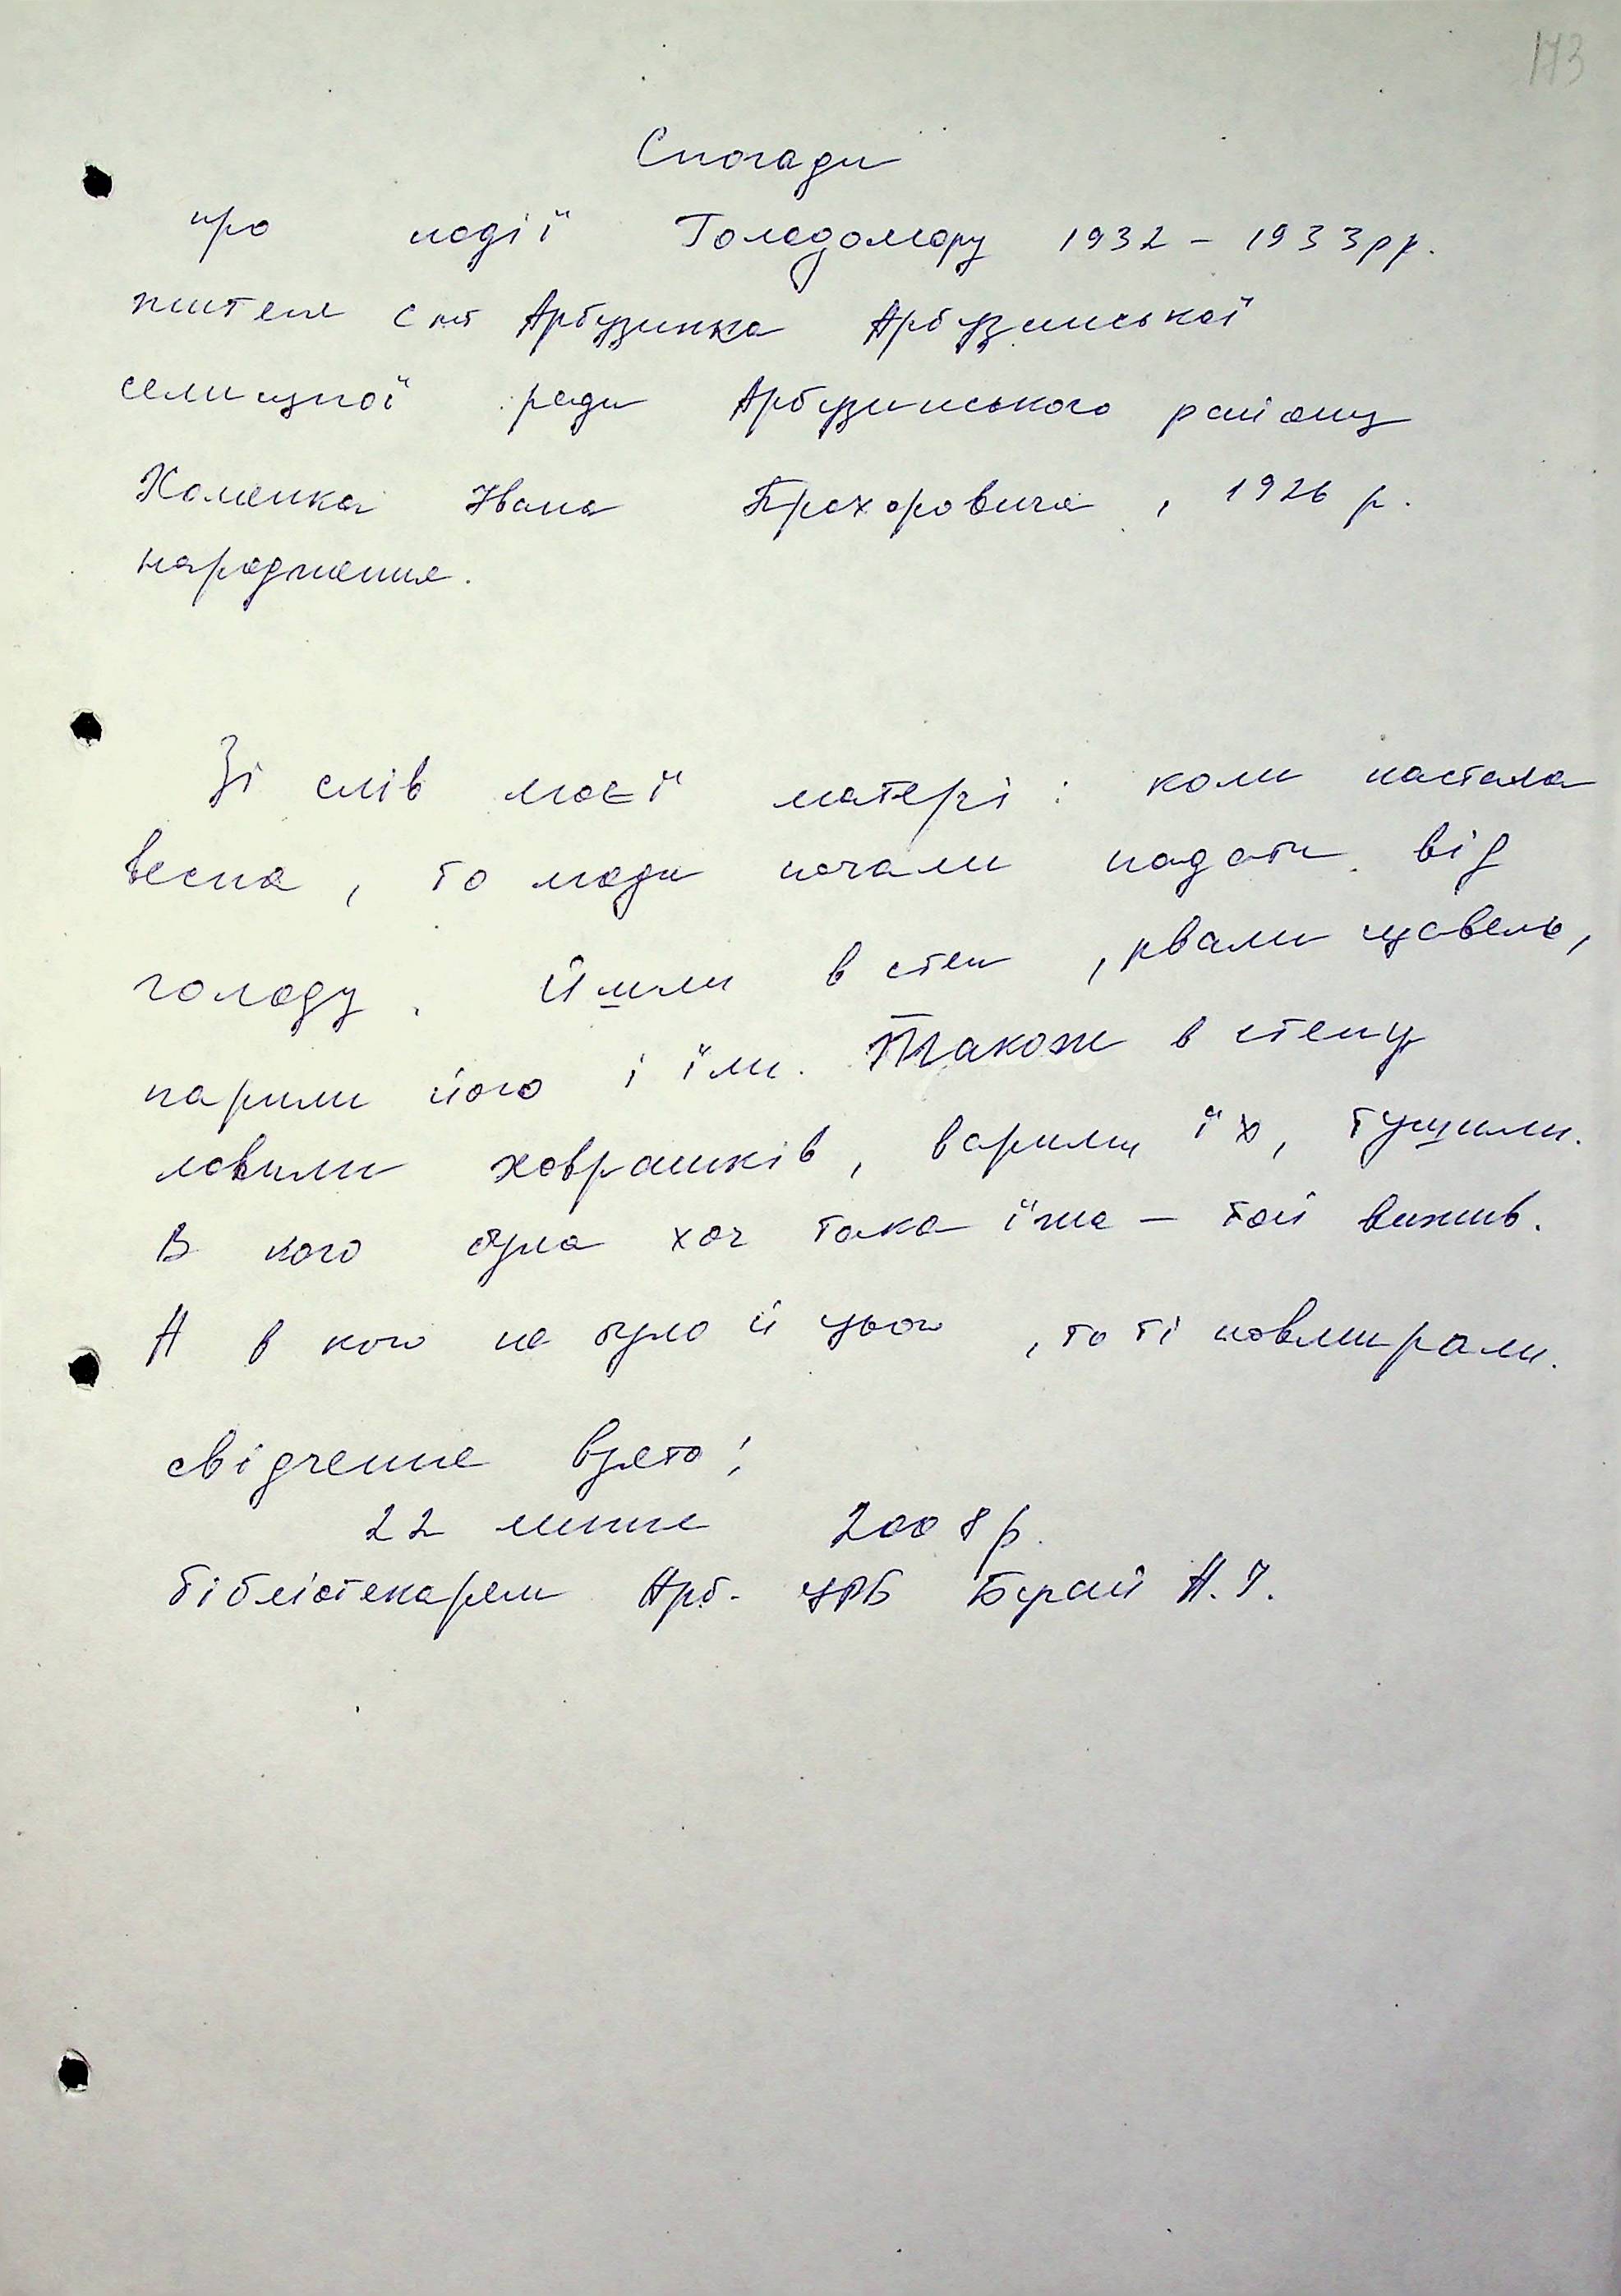 173
Спогади
про події Голодомору 1932 - 1933 рр.
жителя смт Арбузинка Арбузинської
селищної ради Арбузинського району
Хоменка Івана Прохоровича, 1926 р.
народження.
Зі слів моєї матері: коли настала
весна, то люди почали падати від
голоду. Йшли в степ, рвали щавель,
парили його і їли. Також в степу
ловили ховрашків, варили їх, тушили.
В кого була хоч така їжа – той вижив.
А в кого не було й цього, то ті повмирали.
свідчення взято:
22 липня 2008 р.
бібліотекарем Арб. ЦРБ А. І.